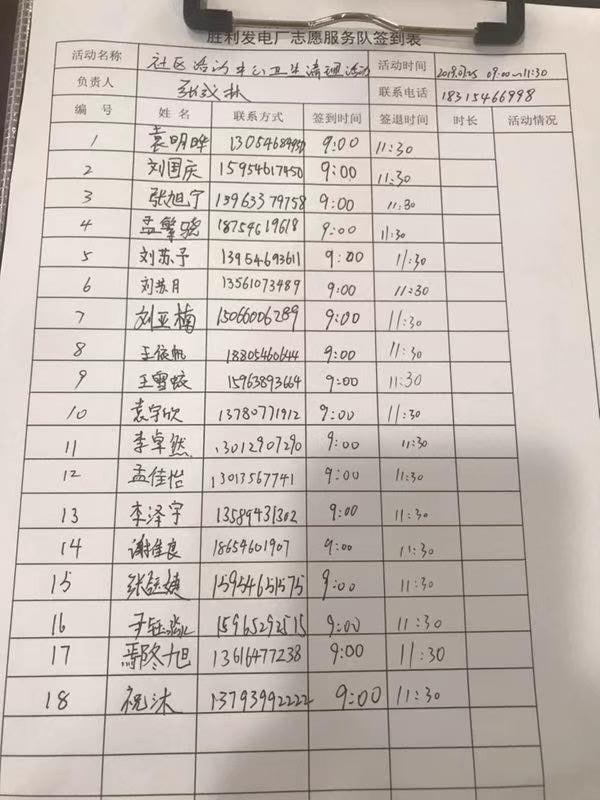 胜利发电厂志愿服务队签到表
活动名称 社区活动中心卫生清理活动 活动时间 09:00~11:30
负责人 联系电话 18315466998
编 号 姓 名 联系方式 签到时间 签退时间 时长 活动情况
1 袁明晔 9:00 11:30
2 刘国庆 15954617450 9:00 11:30
3 张旭宁 13963379758 9:00 11:30
4 18754619618 9:00 11:30
5 刘苏予 13954693611 9:00 11:30
6 刘苏月 13561073489 9:00 11:30
7 刘亚楠 15066006289 9:00 11:30
8 王依帆 18805460644 9:00 11:30
9 王雪蛟 15963893664 9:00 11:30
10 袁宇欣 13780771912 9:00 11:30
11 李卓然 13012907290 9:00 11:30
12 孟佳怡 13013567741 9:00 11:30
13 李泽宇 13589431302 9:00 11:30
14 谢佳良 18654601907 9:00 11:30
15 15954651575 9:00 11:30
16 15965292515 9:00 11:30
17 鄢冬旭 13616477238 9:00 11:30
18 祝沐 13793992222 9:00 11:30